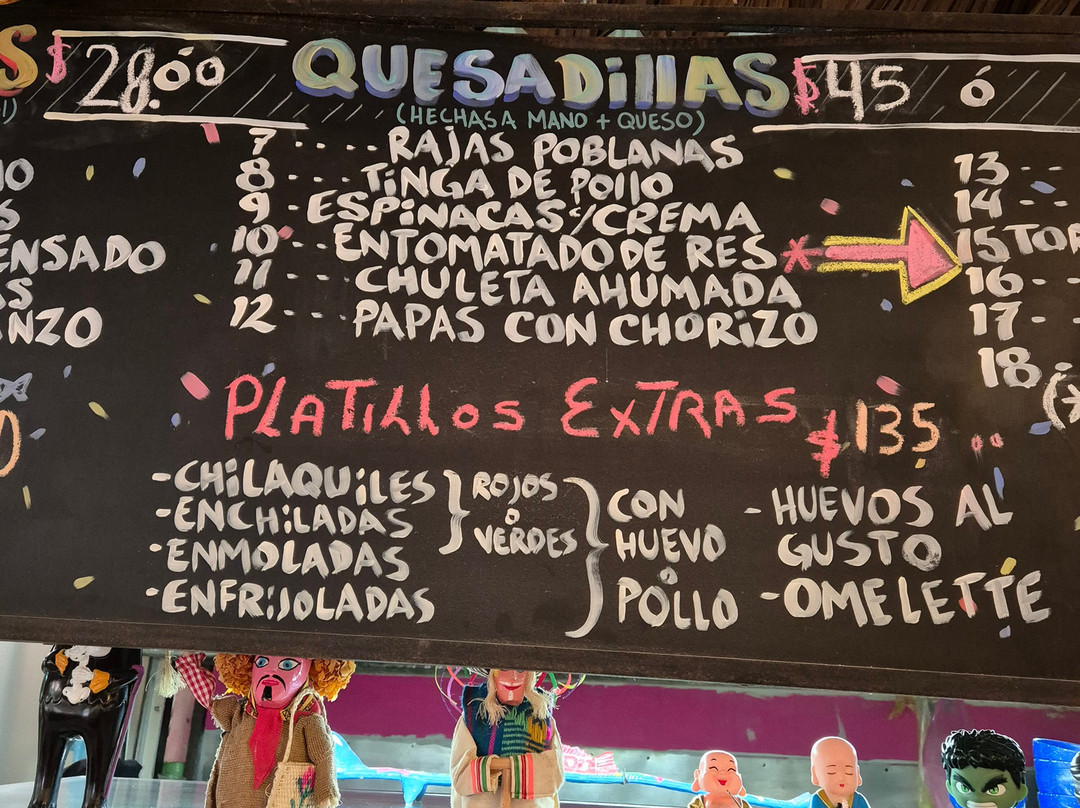 S $28.00
QUESADillAS $45 ó
(HECHAS A MANO + QUESO)
7 ..... RAJAS POBLANAS
8 .... TiNGA DE POllO
9 - ESPiNACAS c/CREMA
10 .. ENTOMATADO DE RES *
11 ... CHULETA AHUMADA
12 ... PAPAS CON CHORiZO
ENSADO
S
NZO
13 --
14 --
15 TOR
16 --
17 --
18 (*
PLATILLOS EXTRAS $135
- CHiLAQUiLES
- ENCHiLADAS
- ENMOLADAS
- ENFRiJOLADAS
ROJOS
o
VERDES
CON
HUEVO
o
POLLO
- HUEVOS AL
GUSTO
- OMELETTE